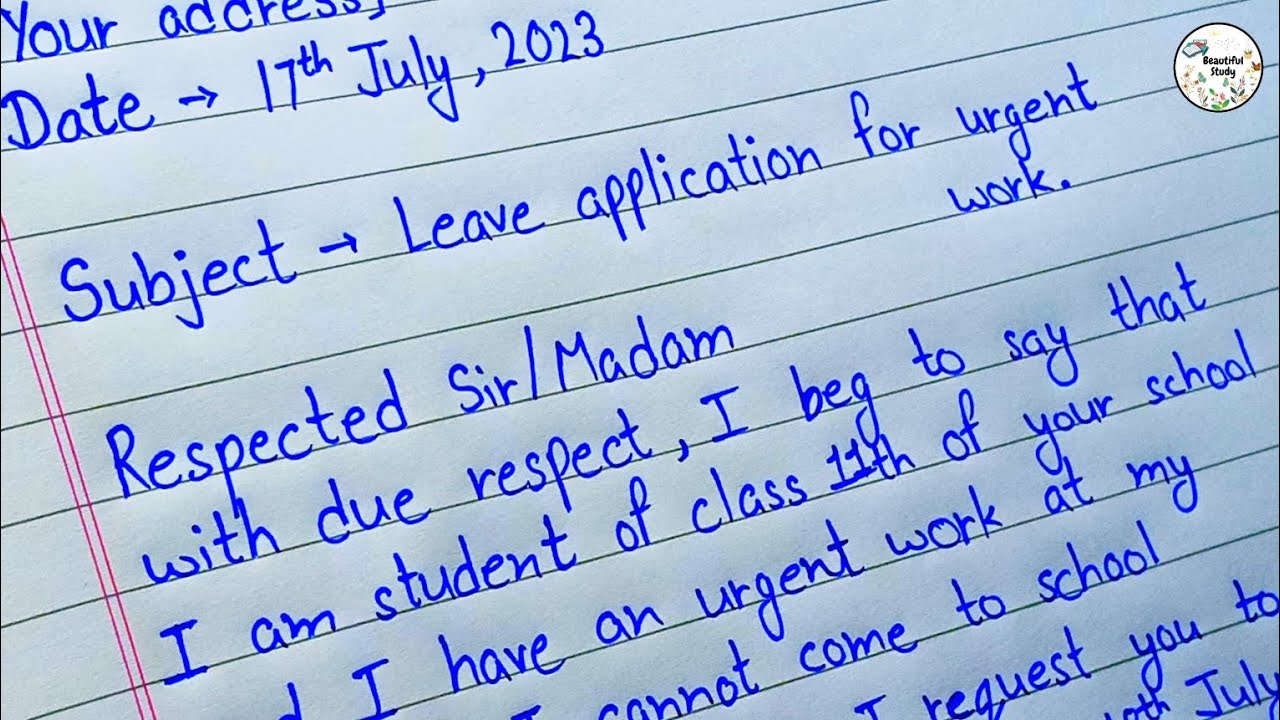 Your address,
Date → 17th July, 2023
Subject → Leave application for urgent
work.
Respected Sir/Madam
with due respect, I beg to say that
I am student of class 11th of your school
I have an urgent work at my
cannot come to school
I request you to
July
Beautiful
Study